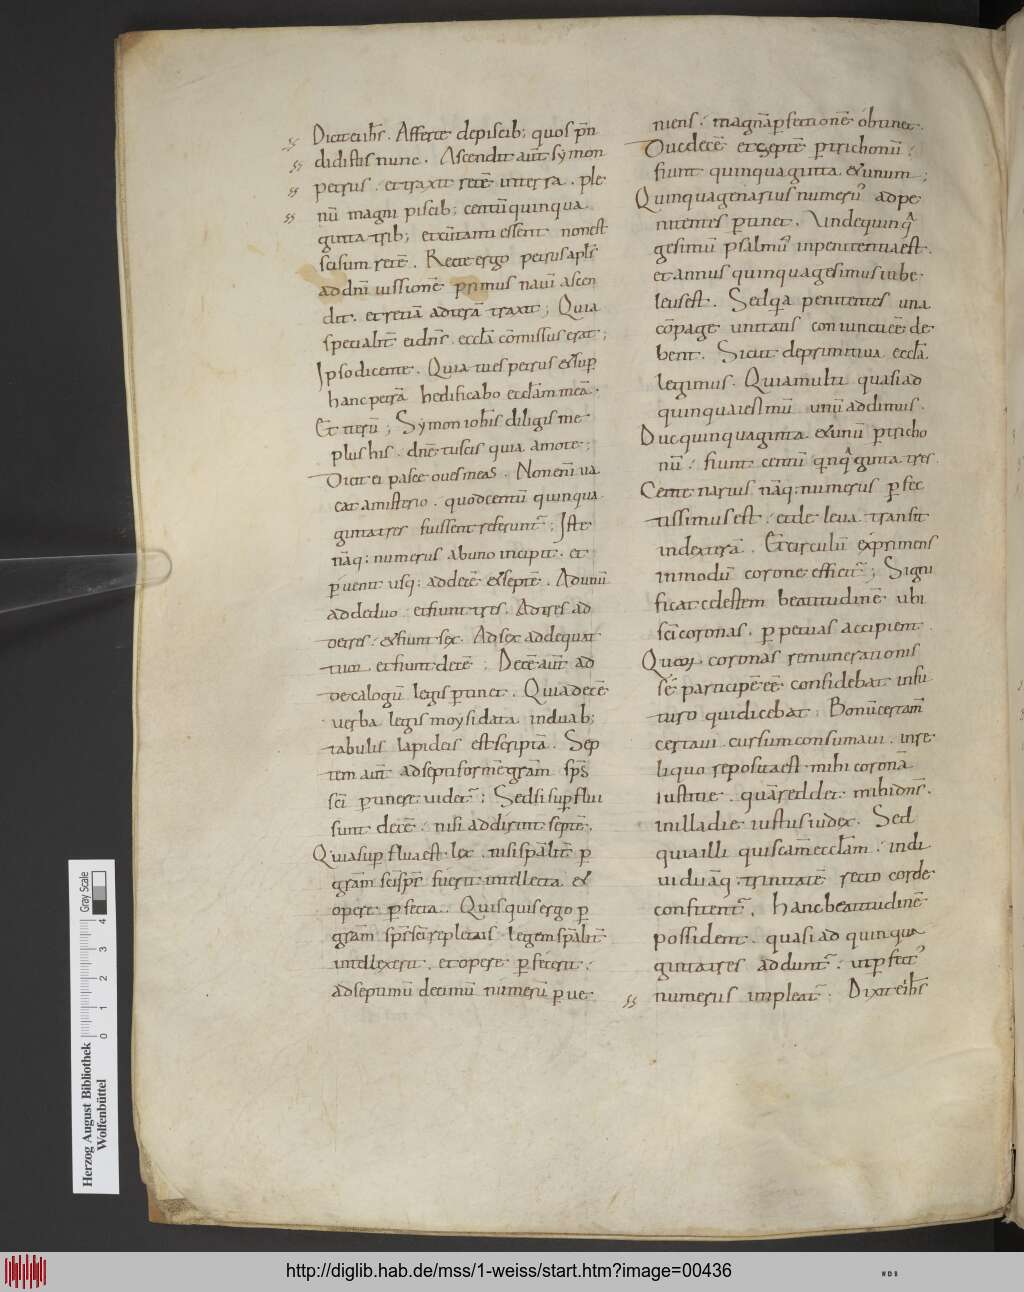 Dicit ei ihs̄. Afferte depiscib; quos p̄n
didistis nunc. Ascendit aut̄ symon
petrus. et traxit retē interra. ple
nū magni piscib; centū quinqua
ginta trib; et cū tanti essent nonest
scisum retē. Recte ergo petrus apl̄s
ad dn̄i iussionē primus naui ascen
dit. et retiā adterā traxit; Quia
specialit̄ ei dn̄s eccl̄a cōmissus erat;
Ipso dicente. Quia tu es petrus et sup̄
hanc petrā hedificabo eccl̄am meā.
Et̄ iterū; Symon iohis̄ diligis me
plus his. dn̄e tu scis quia amo te;
Dicit ei pasce oues meas. Non eni uā
cat amisterio. quod centū quinqua
ginta tres fuissent referunt̄; Iste
nāq: numerus ab uno incipit. et
p̄uenit usq: ad decē et septē. Ad unū
adde duo et fiunt tres. Ad tres ad
de tres: et fiunt sex. Ad sex adde quat
tuor et fiunt decē; Decē aut̄ ad
decalogū legis p̄tinet. Quia decē
uerba legis moysi data in duab;
tabulis lapideis est scriptā. Sep
tem aut̄ ad septiformē grām sp̄s
sc̄i p̄tinere uidet̄: Sed si sup̄flui
sunt decē. nisi addirint septē.
Quia sup̄flua est lex. nisi sp̄alit̄ p̄
grām sci sp̄s fuerit intellecta et
opere p̄fecta. Quisquis ergo p̄
grām sp̄s sci repletus legem sp̄alit̄
intellexerit. et opere p̄fecerit:
ad septimū decimū numerū p̄ue
niens: magnā p̄fectionē obtinet.
Due decē et septē p̄ trichonū:
fiunt quinquaginta et unum;
Quinquagenarius numerus ad pe
nitentes p̄tinet. Vnde quinq
gesimū psalmus in penitentia est.
et annus quinquagesimus iube
leus est. Sed qa penitentes una
cōpage unitatis coniunctiēe de
bent. Sicut de primitiua eccl̄a
legimus. Quia multi quasi ad
quinquaies mū unū addimus.
Duc quinquaginta et unū p̄ tricho
nū: fiunt centū qnqginta tres.
Centenarius nāq: numerus p̄fec
tissimus est: et de leua transit
in dexterā. Et circulū exprimens
in modū corone efficit̄; Signi
ficat celestem beatitudinē ubi
sc̄i coronas p̄petuas accipient.
Quor coronas remunerationis
sē participē eē considebat infu
turo qui dicebat. Bonū certam̄
certaui. cursum consumaui. in re
liquo reposita est mihi coronā
iustitie. quā reddet mihi dn̄s.
in illa die iustus iudex. Sed
quia illi qui s̄ eam eccl̄am: indi
uiduāq. trinitatē recto corde
confitent̄. Hanc beatitudinē
possident. quasi ad quinqua
ginta tres addunt̄: ut p̄fectus
numerus impleat̄. Dixit ei ihs̄
Herzog August Bibliothek
Wolfenbüttel
Gray Scale
0 1 2 3 4
http://diglib.hab.de/mss/1-weiss/start.htm?image=00436